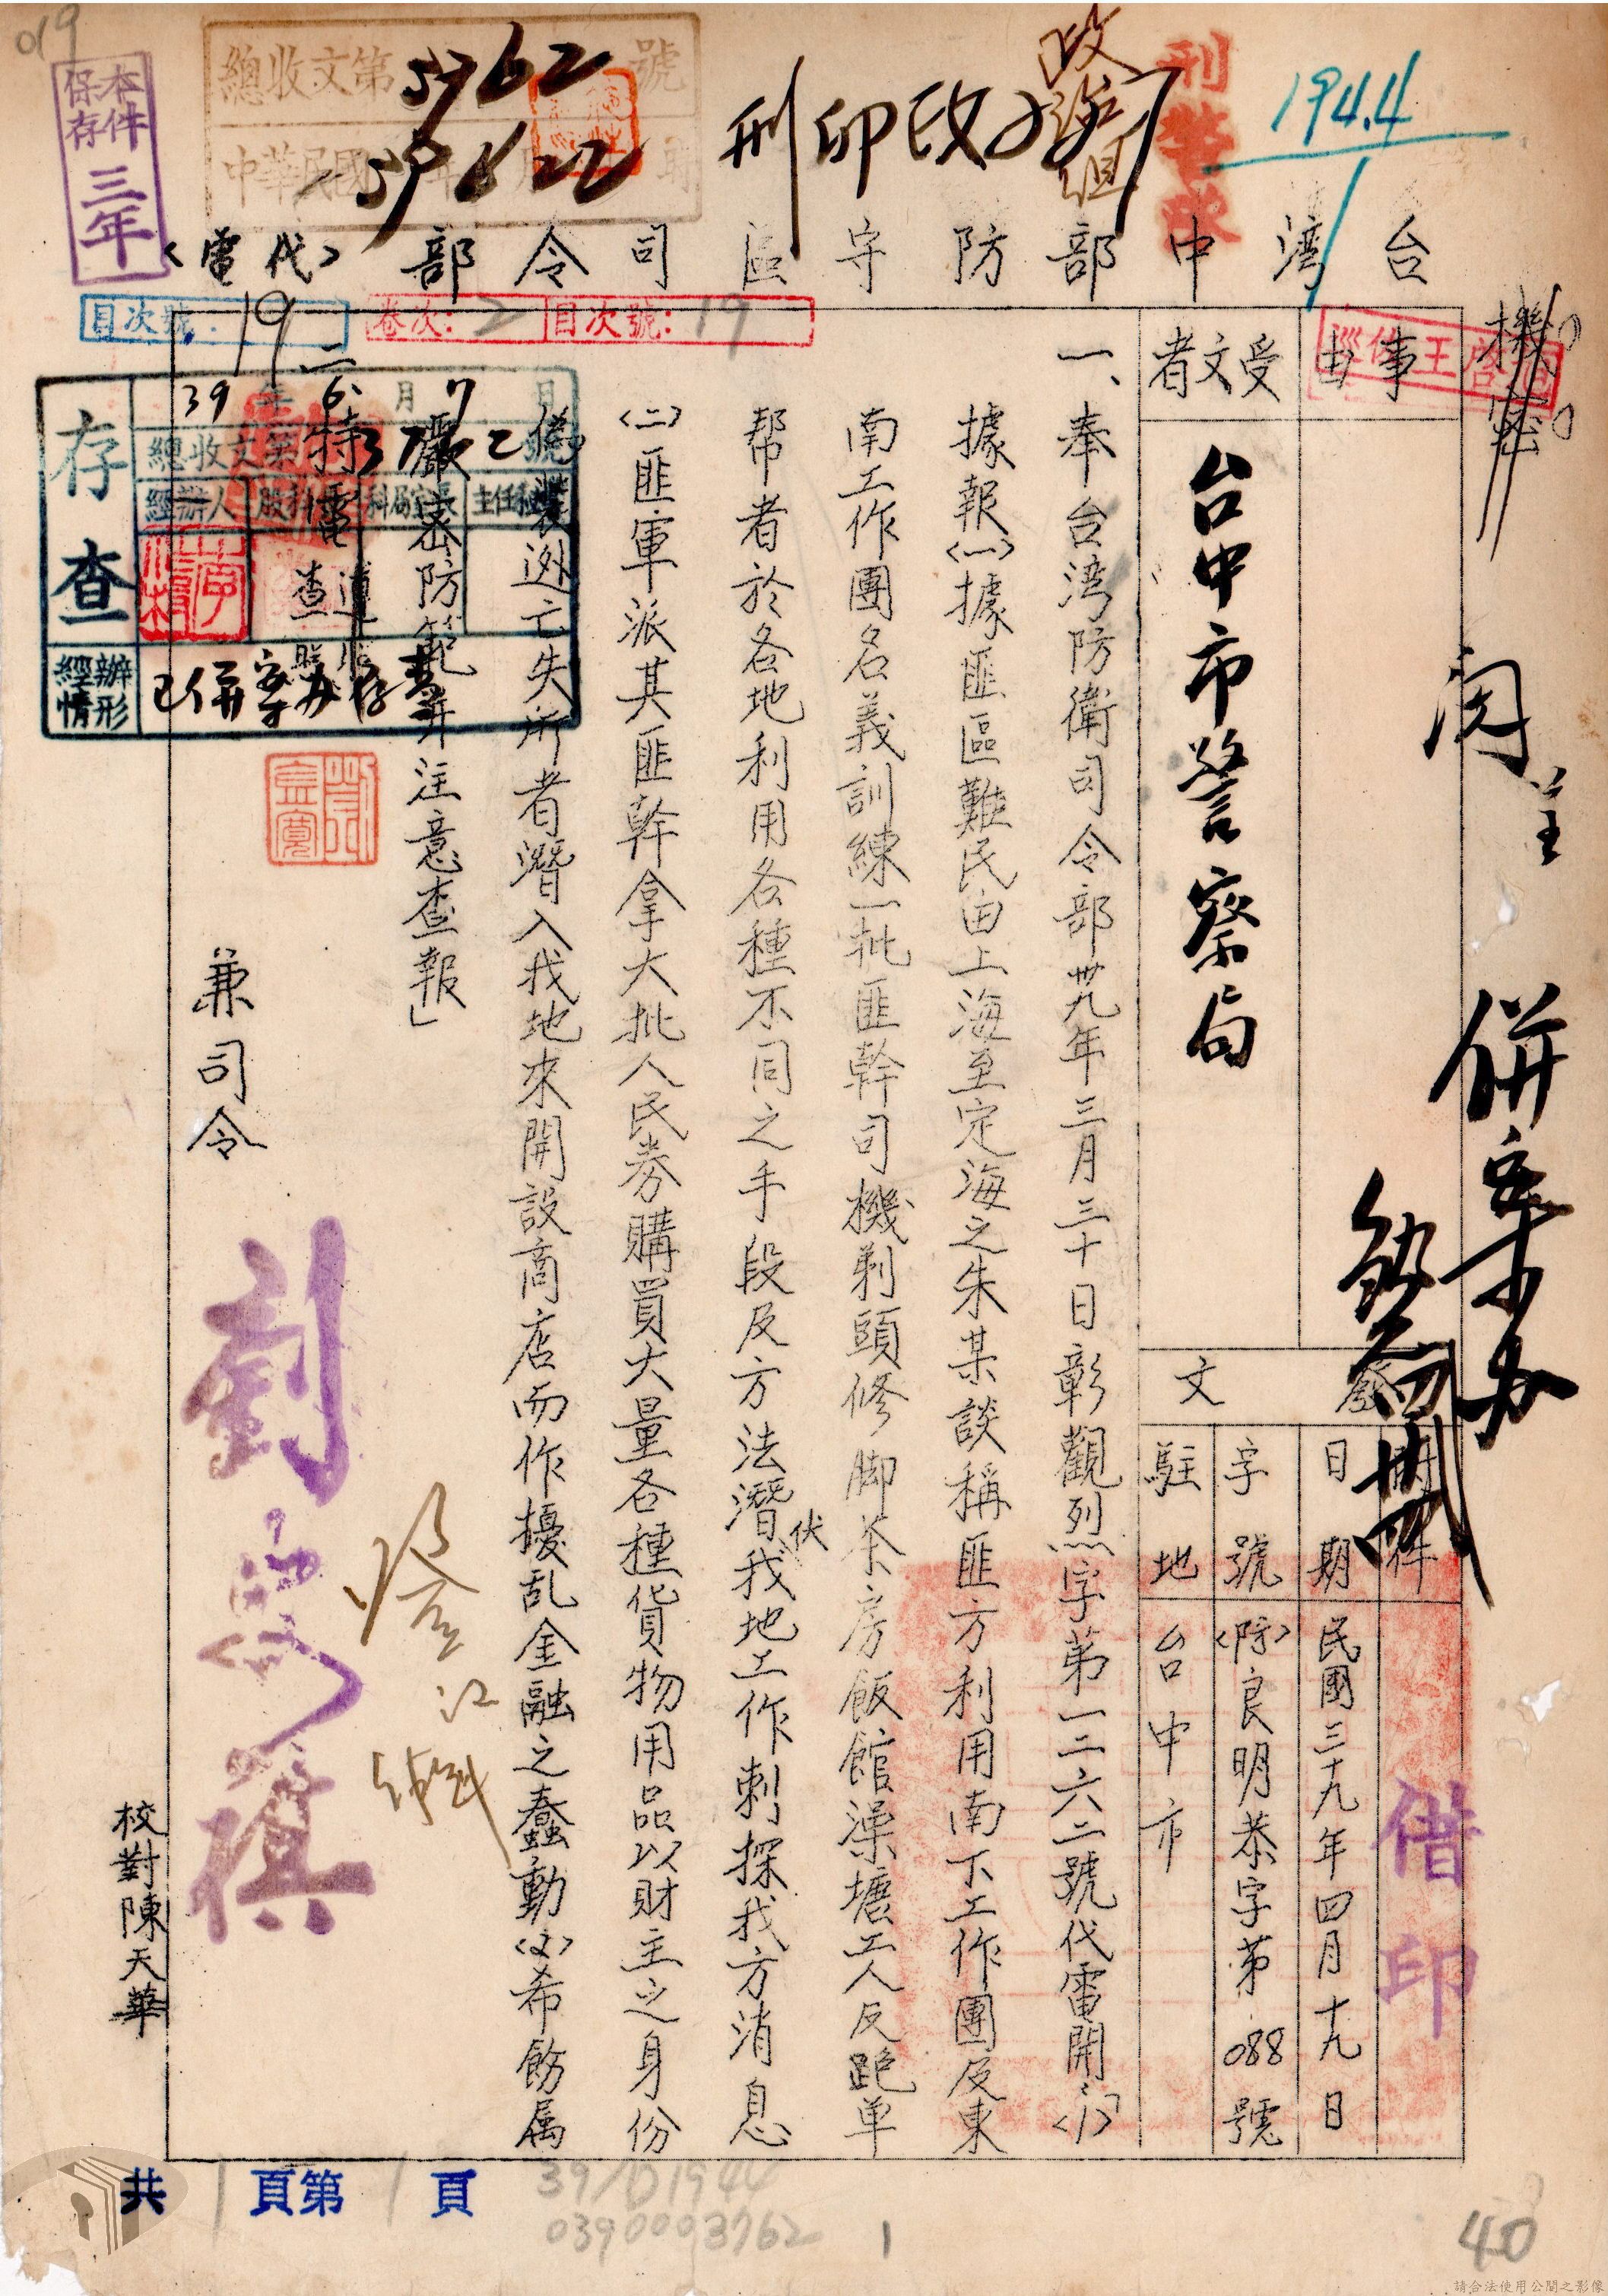 019
本件保存三年
總收文第5762號
中華民國39年 月22
刑印改
政治組
194.4
台湾中部防守區司令部〈代電〉
目次號：19
卷次：2 目次號：19
機密
事由
受文者
台中市警察局
發文
附件
日期 民國三十九年四月十九日
字號 〈防〉良明恭字第088號
駐地 台中市
借印
併案办
一、奉台湾防衛司令部卅九年三月三十日彰觀烈字第一二六二號代電開：「〈1〉
據報〈一〉據匪區難民由上海至定海之朱某談稱匪方利用南下工作團及東
南工作團名義訓練一批匪幹司機剃頭修脚茶房飯館澡塘工人及跑单
幫者於各地利用各種不同之手段及方法潛伏我地工作刺探我方消息
〈二〉匪軍派其匪幹拿大批人民券購買大量各種貨物用品以財主之身份
偽裝逃亡失所者潛入我地來開設商店而作擾乱金融之蠢動〈2〉希飭属
嚴密防範并注意查報」
二、特電 查
存查
39年6月7日
總收文第 號
經辦人 股科 科局室長 主任秘書
經辦情形 已併案办存查
兼司令
劉安祺
校對陳天華
共1頁第1頁
39/D1944
0390003762
1
40
請合法使用公開之影像